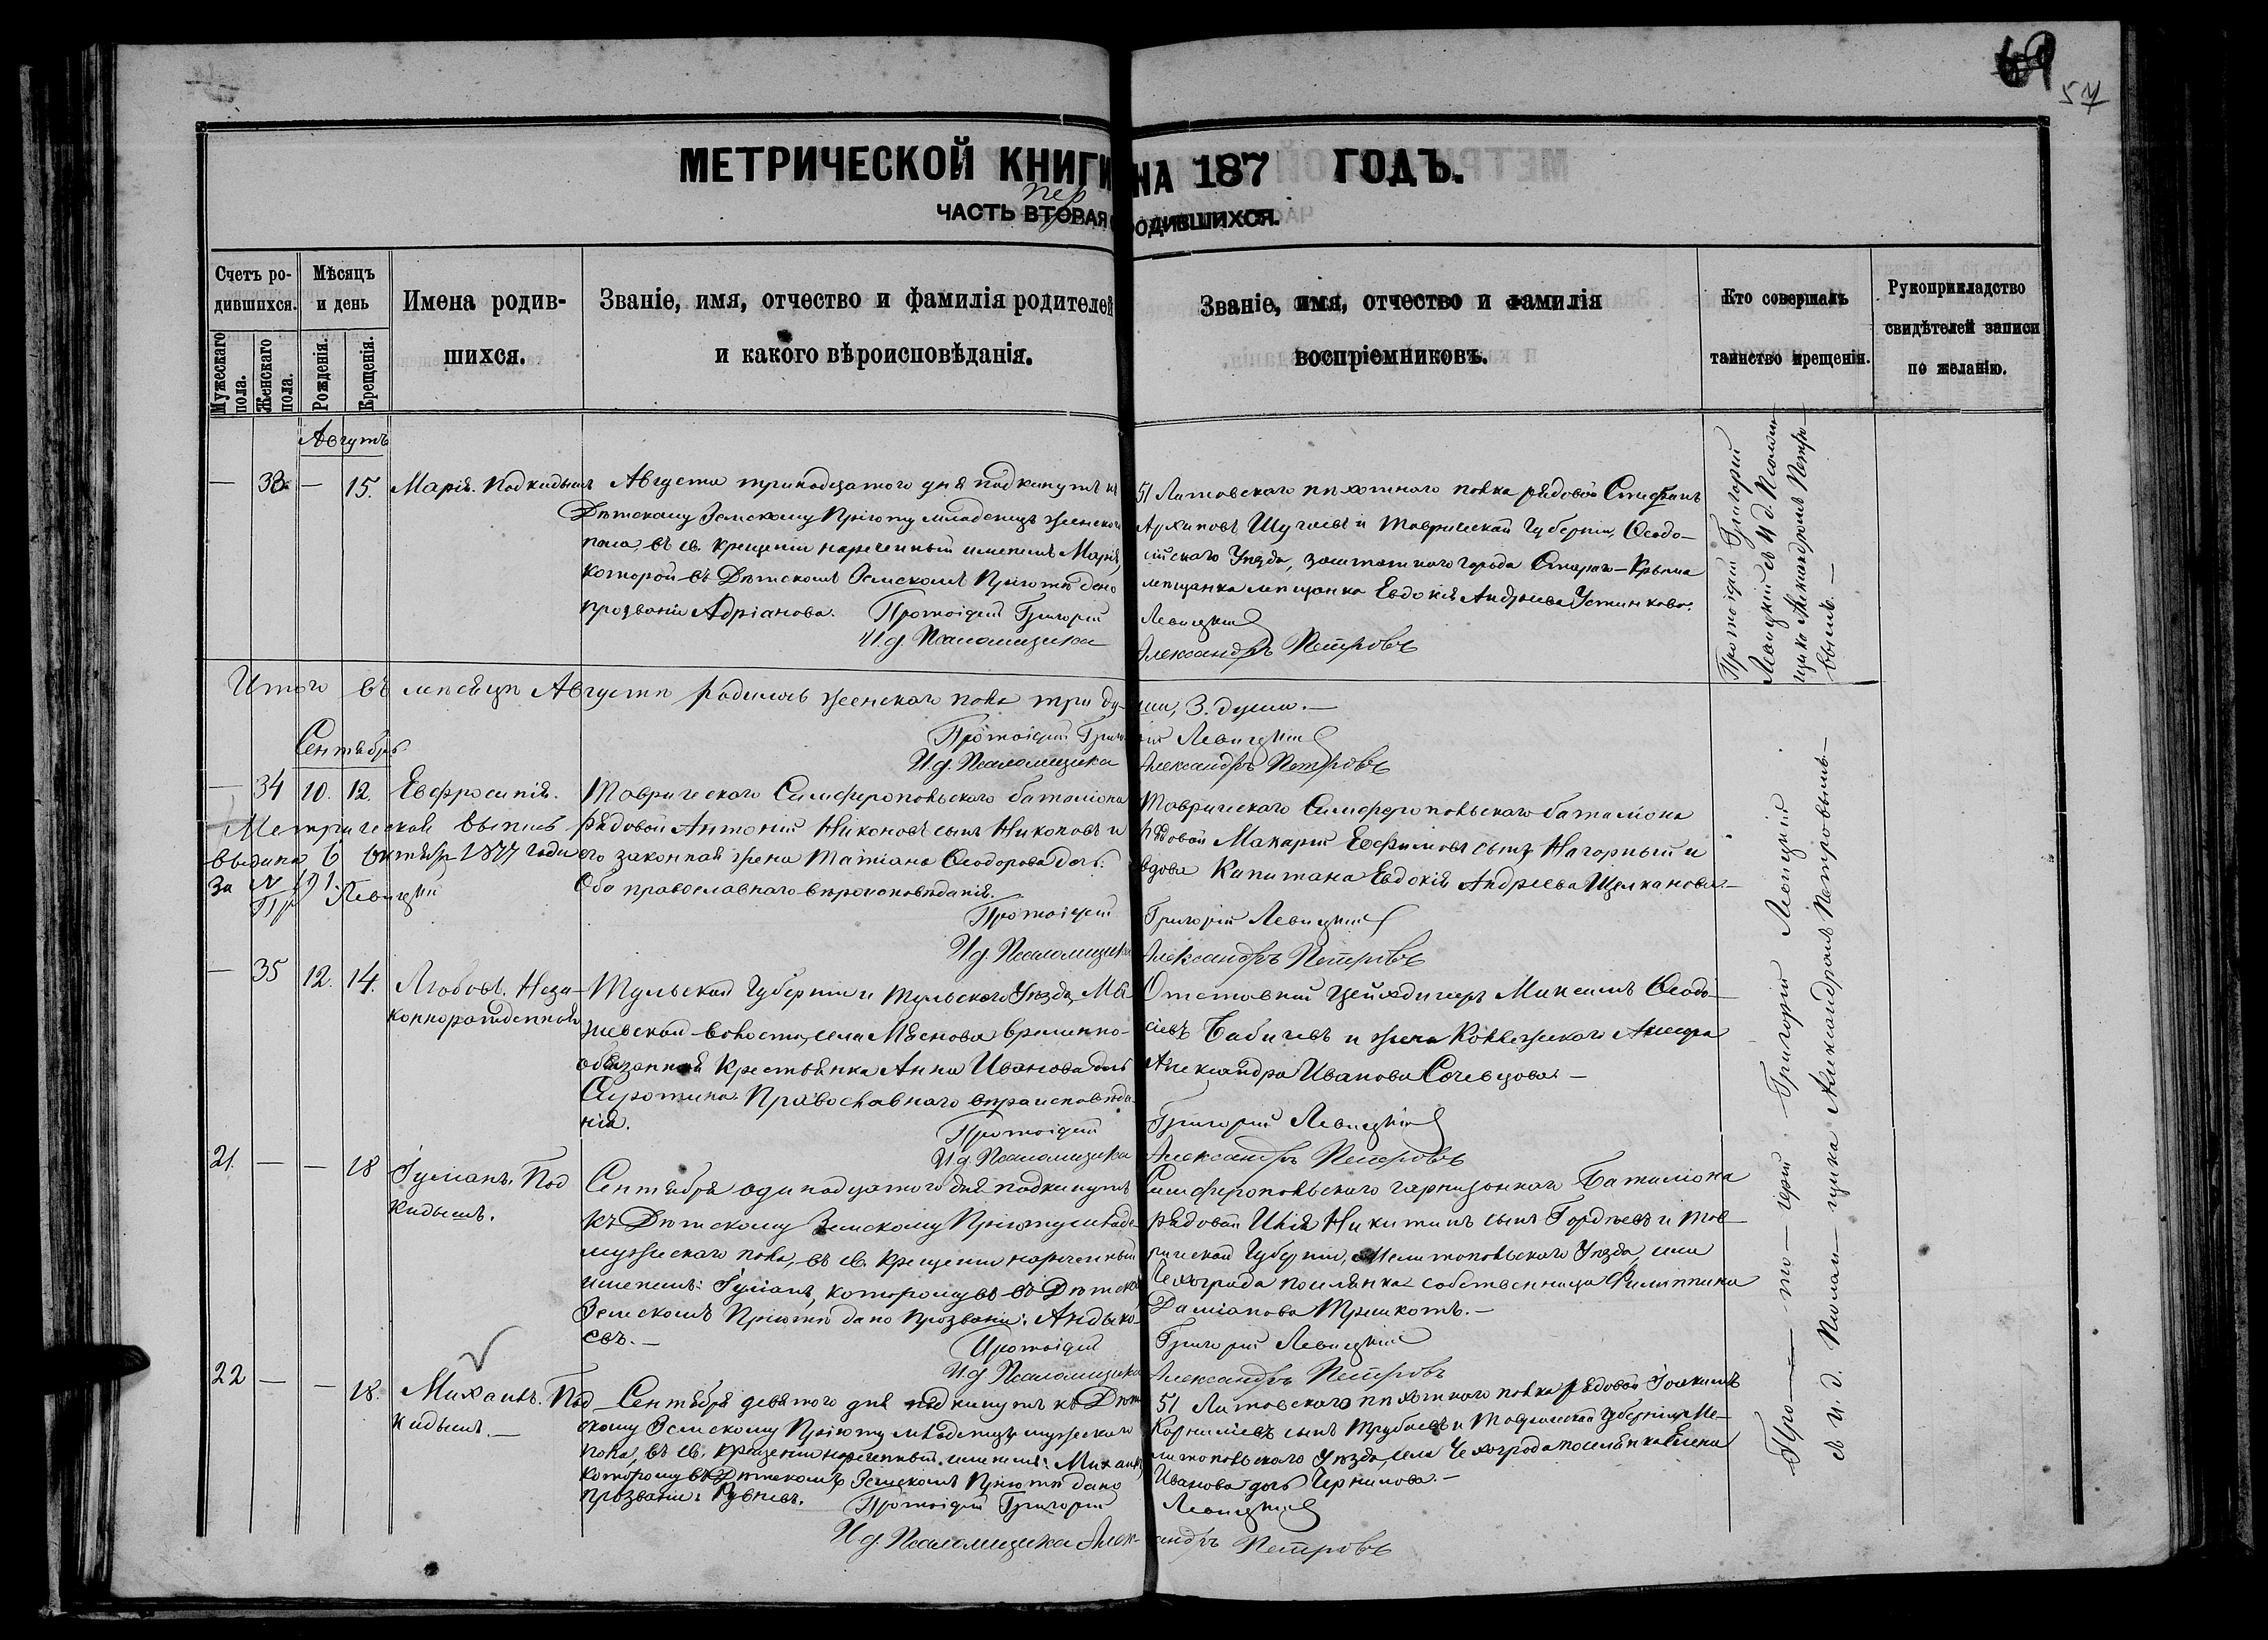 69
57
МЕТРИЧЕСКОЙ КНИГИ НА 187 ГОДЪ.
пер
ЧАСТЬ ВТОРАЯ РОДИВШИХСЯ.
Счетъ ро-
дившихся.
Мужескаго пола.
Женскаго пола.
Мѣсяцъ
и день
Рожденія.
Крещенія.
Имена родив-
шихся.
Званіе, имя, отчество и фамилія родителей
и какого вѣроисповѣданія.
Званіе, имя, отчество и фамилія
воспріемниковъ.
Кто совершалъ
таинство крещенія.
Рукоприкладство
свидѣтелей записи
по желанію.
Августъ
— 33 — 15. Марія. Подкидышъ
Августа тринадцатого дня подкинутъ къ
Дѣтскому Земскому Пріюту младенецъ женскаго
пола, въ св. крещеніи нареченный именемъ Марія,
которой въ Дѣтскомъ Земскомъ Пріютѣ дано
прозваніе Адріанова. Протоіерей Григорій
И. д. Псаломщика
51 Литовскаго пѣхотнаго полка рядовой Стефанъ
Архиповъ и Таврической Губерніи, Ѳеодо-
сійскаго Уѣзда, заштатнаго города Стараго-Крыма
мѣщанка мѣщанка Евдокія Андреева
Левицкій
Александръ Петровъ
Протоіерей Григорій
Левицкій съ И. д. Псалом-
щика Александромъ Петро-
вымъ. —
Итого въ мѣсяцѣ Августѣ родилось женскаго пола три ду-
ши, 3. души. —
Протоіерей Григорій Левицкій
И. д. Псаломщика Александръ Петровъ
Сентябрь
— 34 10. 12. Евфросинія.
Метрическая выпись
выдана 6 Октября 1877 года
за № 191.
Пр Левицкій
Таврическаго Симферопольскаго баталіона
рядовой Антоній Никоновъ сынъ Никоновъ и
его законная жена Татіана Ѳеодорова дочь.
Оба православнаго вѣроисповѣданія.
Протоіерей
И. д. Псаломщика
Таврическаго Симферопольскаго баталіона
рядовой Макарій Евфимовъ сынъ Нагорный и
вдова Капитана Евдокія Андреева Щелканова. —
Григорій Левицкій
Александръ Петровъ
— 35 12. 14. Любовь. Неза-
коннорожденная
Тульской Губерніи и Тульскаго Уѣзда
волости, села Мяснова временно-
обязанная крестьянка Анна Иванова дочь
Сиротина. Православнаго вѣроисповѣда-
нія.
Протоіерей
И. д. Псаломщика
Отставной Максимъ Ѳеодо-
сіевъ Бабичевъ и жена
Александра Иванова
Григорій Левицкій
Александръ Петровъ
21. — — 18 Іуліанъ. Под
кидышъ.
Сентября одинадцатого дня подкинутъ
къ Дѣтскому Земскому Пріюту младе
мужескаго пола, въ св. крещеніи нареченный
именемъ: Іуліанъ, которому въ Дѣтско
Земскомъ Пріютѣ дано прозваніе:
евъ. —
Протоіерей
И. д. Псаломщика
Симферопольскаго гарнизоннаго Баталіона
рядовой Илія Никитинъ сынъ Гордѣевъ и Тав-
рической Губерніи, Мелитопольскаго Уѣзда, села
Чехограда поселянка собственница Филиппина
Даміанова —
Григорій Левицкій
Александръ Петровъ
22 — — 18. Михаилъ. Под
кидышъ. —
Сентября девятого дня подкинутъ къ Дѣт
скому Земскому Пріюту младенецъ мужескаго
пола, въ св. крещеніи нареченный именемъ: Михаилъ,
которому въ Дѣтскомъ Земскомъ Пріютѣ дано
прозваніе:
Протоіерей Григорій
И. д. Псаломщика Алек-
51 Литовскаго пѣхотнаго полка рядовой Іоакимъ
Корниліевъ сынъ и Таврической Губерніи, Ме-
литопольскаго Уѣзда, села Чехограда поселянка Елена
Иванова дочь Чернилова. —
Левицкій
сандръ Петровъ
Про — то — іерей Григорій Левицкій
съ И. д. Псалом — щика Александромъ Петровымъ. —